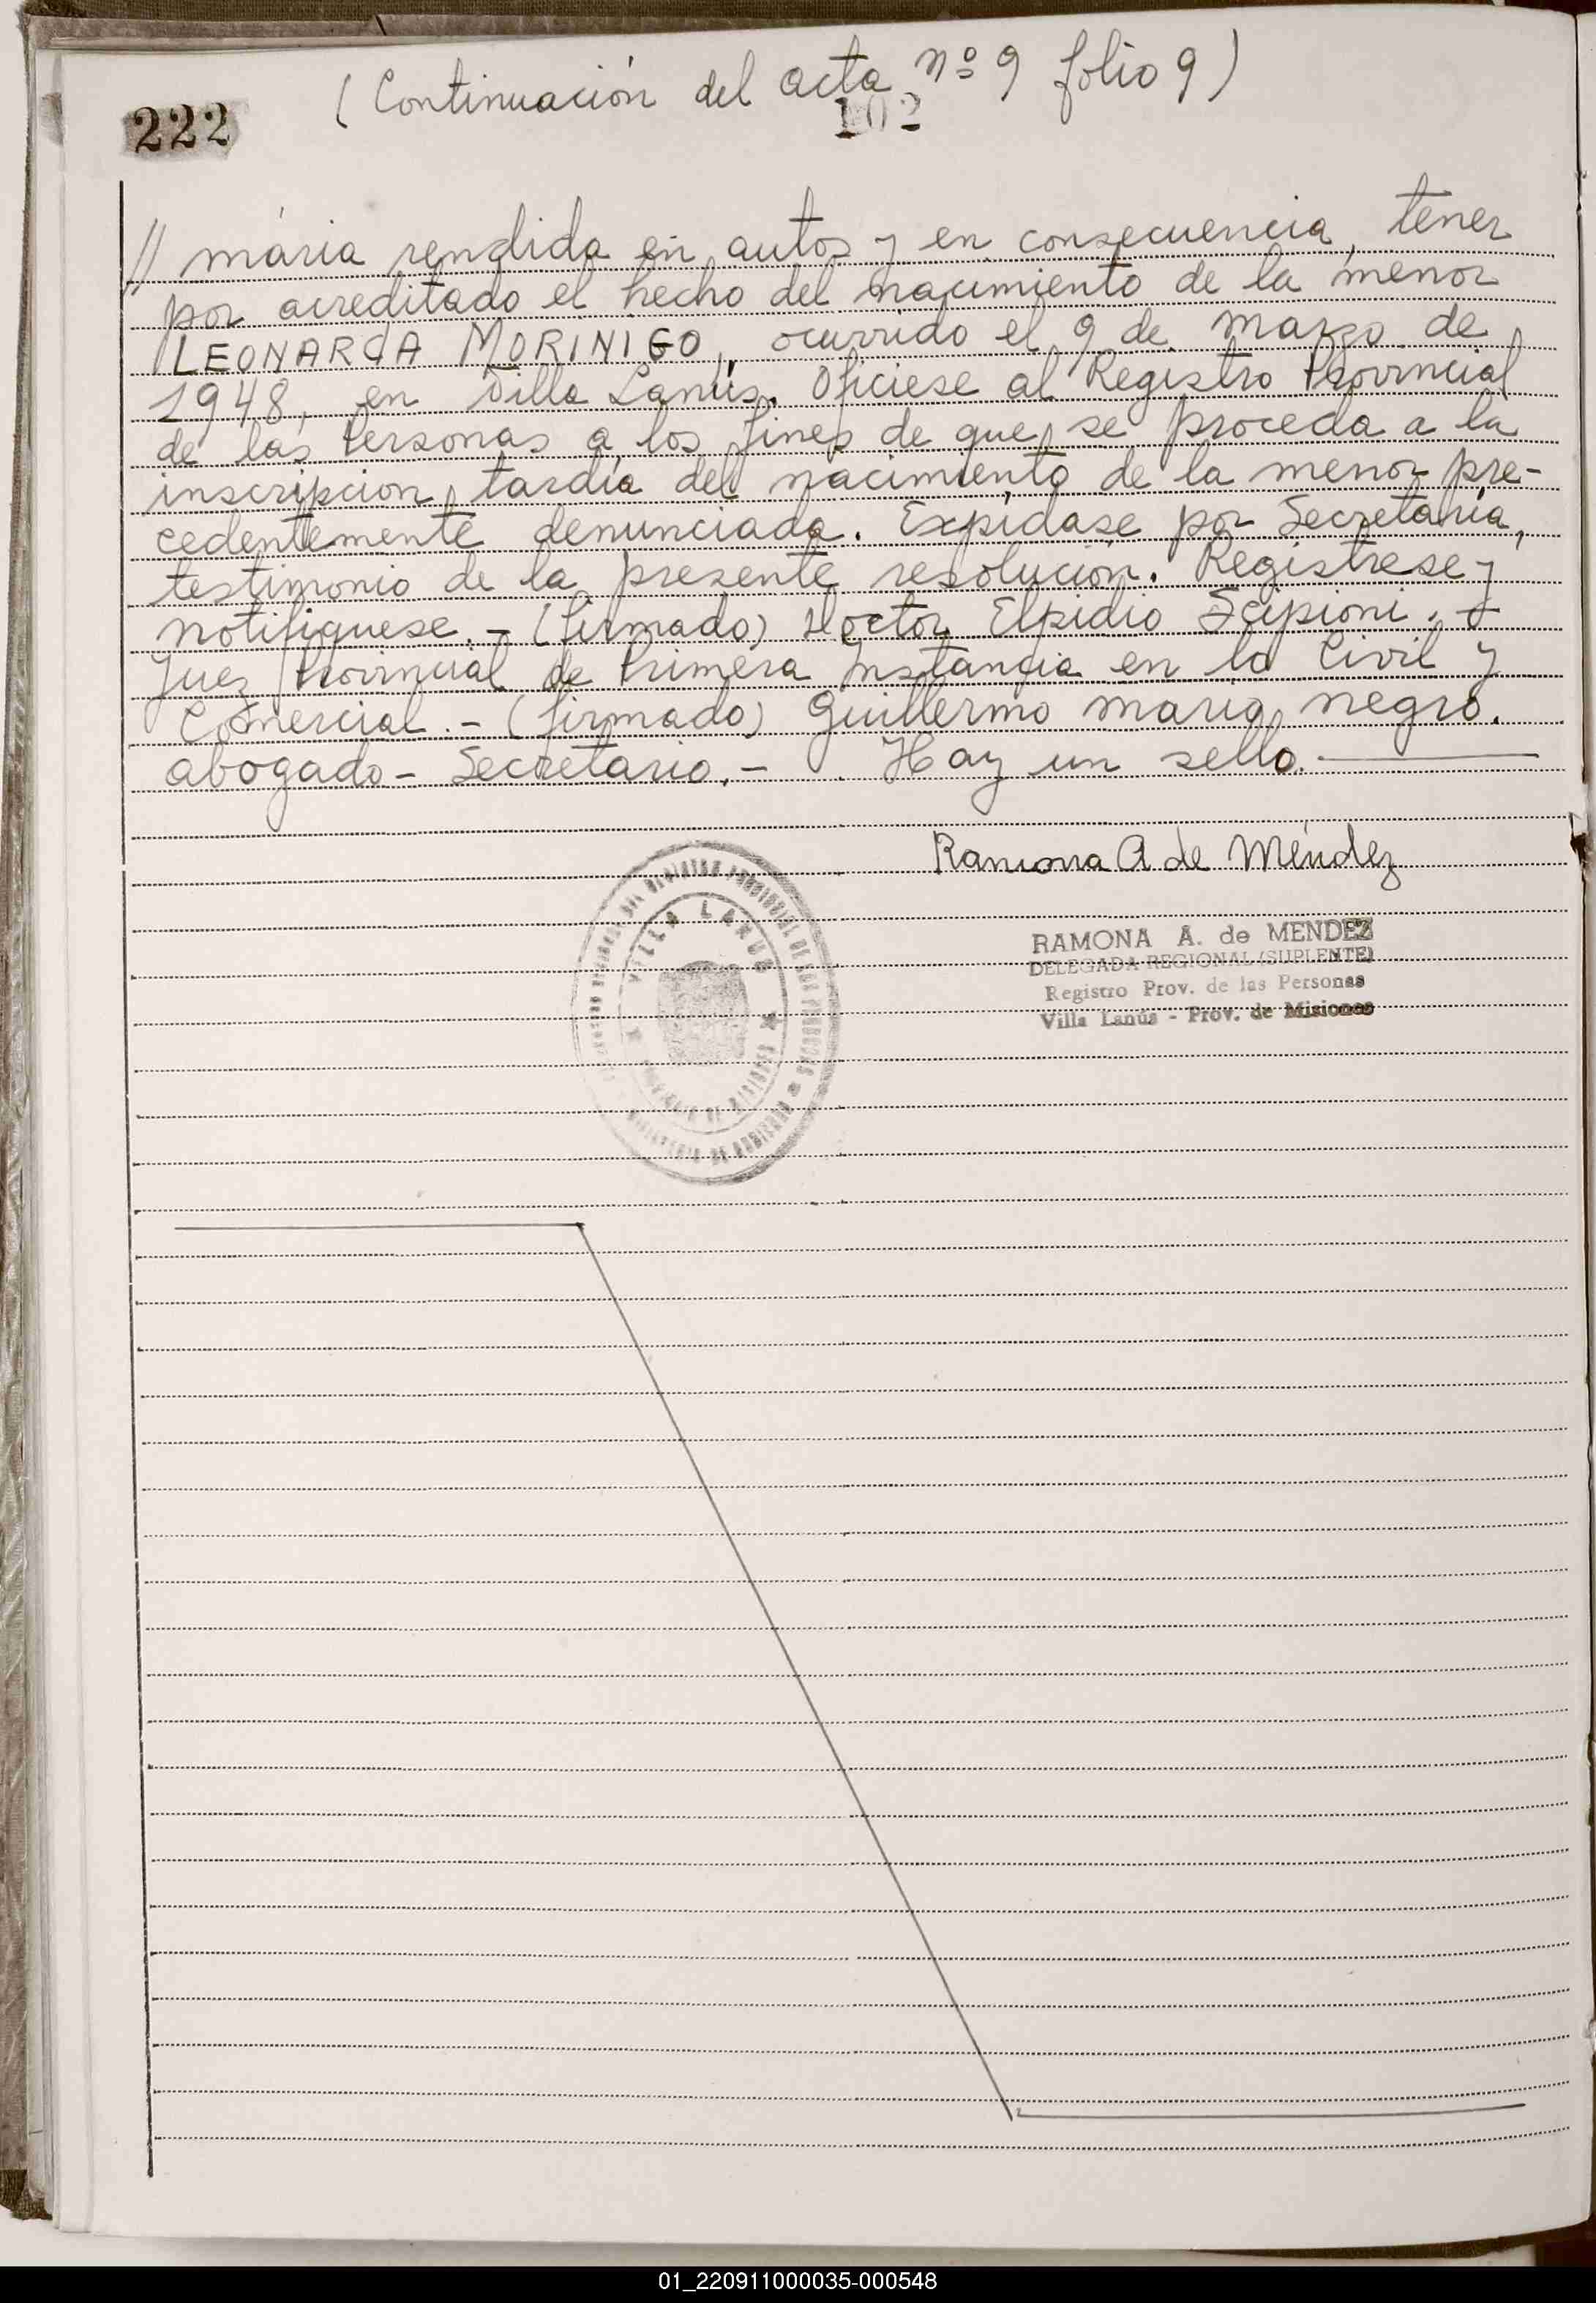 (Continuación del acta nº 9 folio 9)
222
102
// maria rendida en autos y en consecuencia, tener
por acreditado el hecho del nacimiento de la menor
LEONARDA MORINIGO, ocurrido el 9 de marzo de
1948, en Villa Lanús. Oficiese al Registro Provincial
de las Personas a los fines de que se proceda a la
inscripcion tardía del nacimiento de la menor pre-
cedentemente denunciada. Expídase por Secretaría,
testimonio de la presente resolución. Registrese y
notifiquese.- (firmado) Doctor Elpidio Scipioni.
Juez Provincial de Primera Instancia en lo Civil y
Comercial.- (firmado) Guillermo Mario Negro.
abogado- Secretario.- Hay un sello.
Ramona A de Méndez
RAMONA A. de MENDEZ
DELEGADA REGIONAL (SUPLENTE)
Registro Prov. de las Personas
Villa Lanús - Prov. de Misiones
VILLA LANUS
PROVINCIA DE MISIONES
DEL REGISTRO PROVINCIAL DE LAS PERSONAS
MINISTERIO DE GOBIERNO
01_220911000035-000548